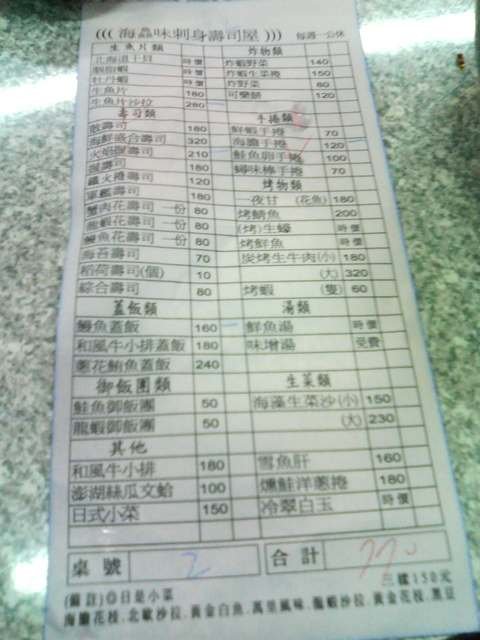 ((( 海鱻味刺身壽司屋 ))) 每週一公休
生魚片類 炸物類
北海道干貝 時價 炸蝦野菜 140
胭脂蝦 時價 炸蝦生菜捲 150
牡丹蝦 時價 炸野菜 80
生魚片 180 可樂餅 120
生魚片沙拉 280
壽司類 手捲類
散壽司 180 鮮蝦手捲 70
海鮮盛合壽司 320 海膽手捲 120
火焰握壽司 210 鮭魚卵手捲 100
握壽司 180 蟳味棒手捲 70
鐵火捲壽司 120 烤物類
軍艦壽司 180 一夜甘 (花魚) 180
蟹肉花壽司 一份 80 烤鯖魚 200
龍蝦花壽司 一份 80 (烤)生蠔 時價
鰻魚花壽司 一份 80 烤鮮魚 時價
海苔壽司 70 炭烤生牛肉(小) 180
稻荷壽司(個) 10 (大) 320
綜合壽司 80 烤蝦 (隻) 60
蓋飯類 湯類
鰻魚蓋飯 160 鮮魚湯 時價
和風牛小排蓋飯 180 味增湯 免費
蔥花鮪魚蓋飯 240
御飯團類 生菜類
鮭魚御飯團 50 海藻生菜沙(小) 150
龍蝦御飯團 50 (大) 230
其他
和風牛小排 180 雪魚肝 160
澎湖絲瓜文蛤 100 燻鮭洋蔥捲 180
日式小菜 150 冷翠白玉 時價
桌號 2 合計 770
(備註)◎日是小菜 三樣150元
海膽花枝、北歐沙拉、黃金白魚、萬里風味、龍蝦沙拉、黃金花枝、黑豆